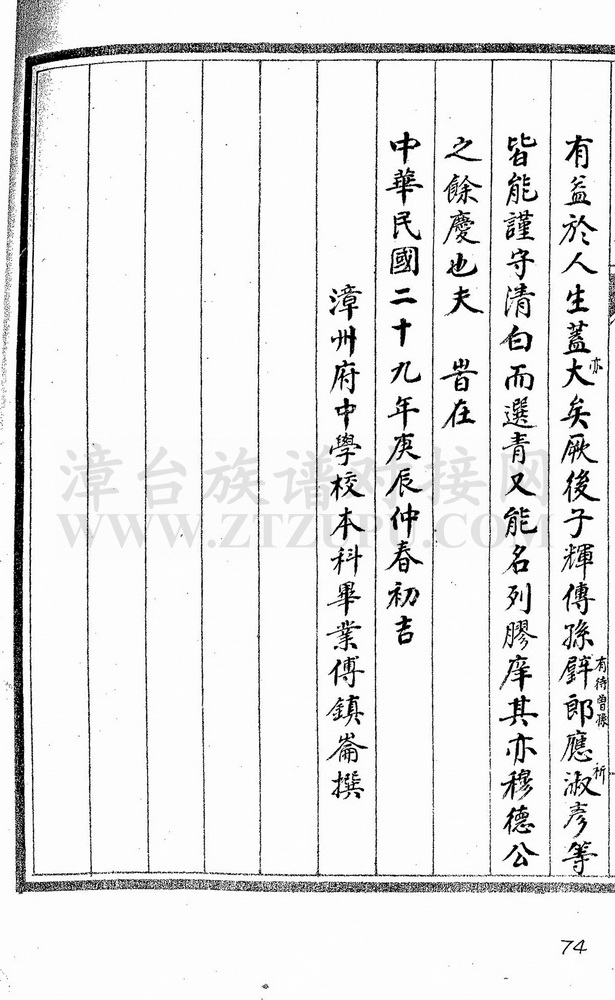 有益於人生蓋亦大矣厥後子輝傳孫辟郎有待曾孫應淑祈彥等
皆能謹守清白而選青又能名列膠庠其亦穆德公
之餘慶也夫 昔在
中華民國二十九年庚辰仲春初吉
漳州府中學校本科畢業傅鎮崙撰
漳台族谱对接网
WWW.ZTZUPU.COM
74